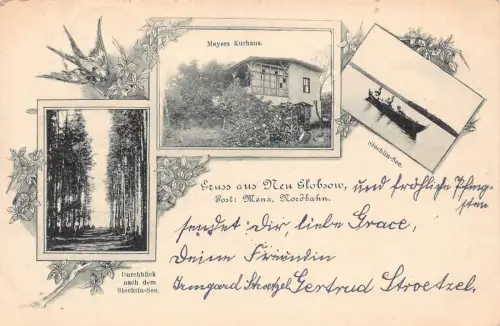 Meyers Kurhaus.
Stechlin-See.
Durchblick
nach dem
Stechlin-See.
Gruss aus Neu Globsow,
Post: Menz, Nordbahn.
und fröhliche Pfing-
sten
sendet Dir, liebe Grace,
Deine Freundin
Irmgard Gertrud Stroetzel.